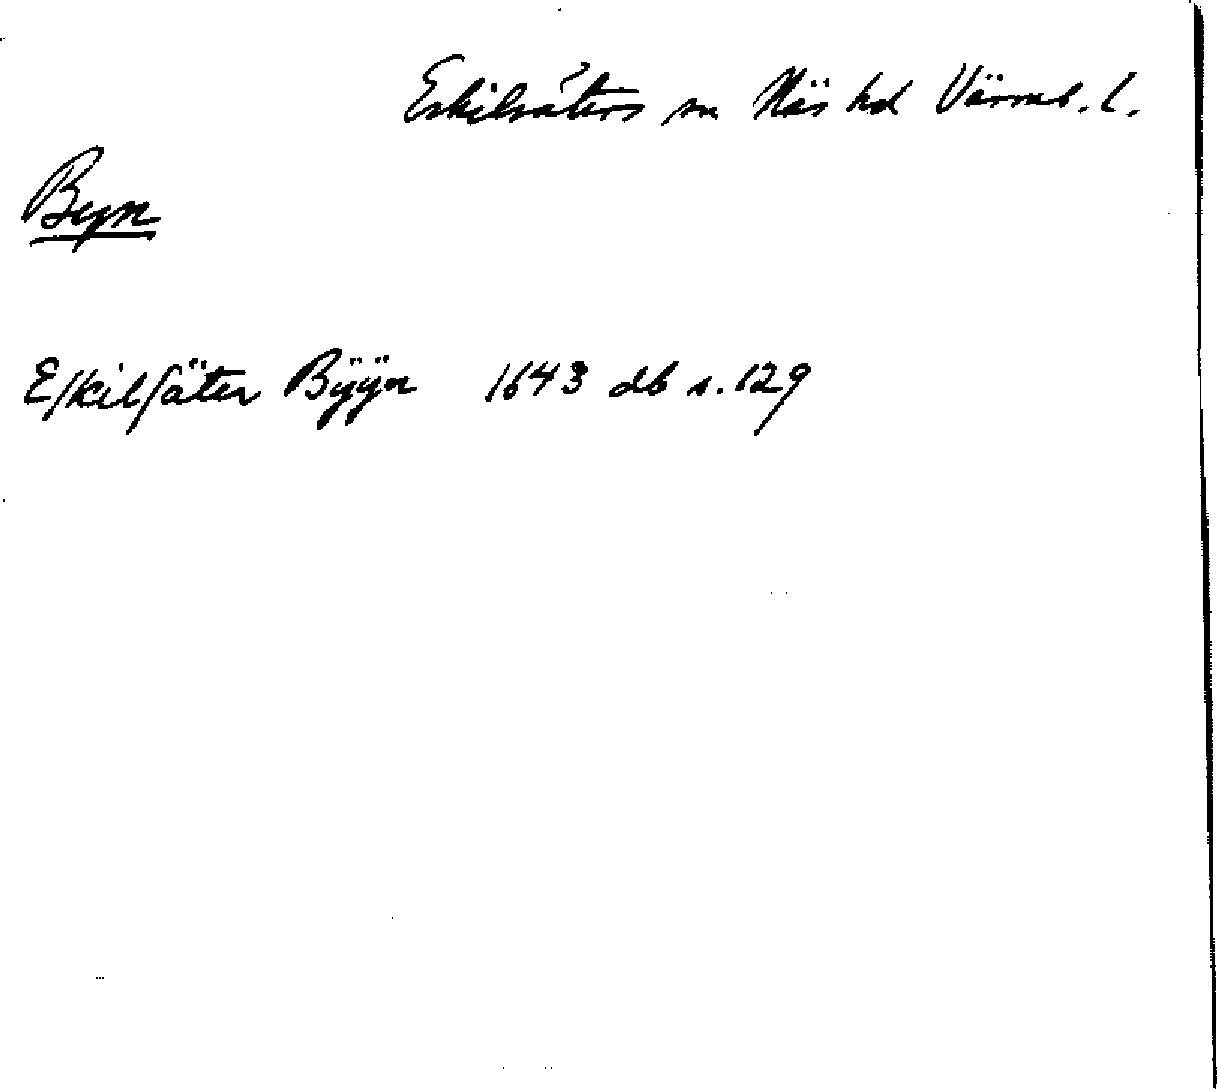 Eskilsäters sn Näs hd Värml. l.
Byn
Eſkilſäter Bÿÿn 1643 db s. 129